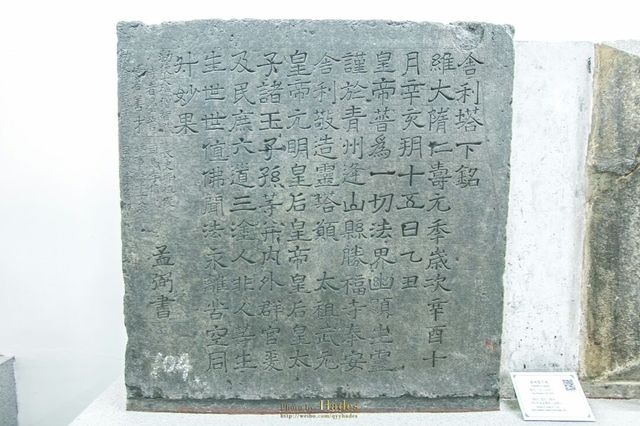 舍利塔下銘
維大隋仁壽元年歲次辛酉十
月辛亥朔十五日乙丑
皇帝普為一切法界幽顯生靈
謹於青州逢山縣勝福寺奉安
舍利敬造靈塔願 太祖武元
皇帝元明皇后皇帝皇后皇太
子諸王子孫等并內外群官爰
及民庶六道三塗人非人等生
生世世值佛聞法永離苦空同
升妙果
孟弼書
Photo by Hades
http://weibo.com/qyyhades